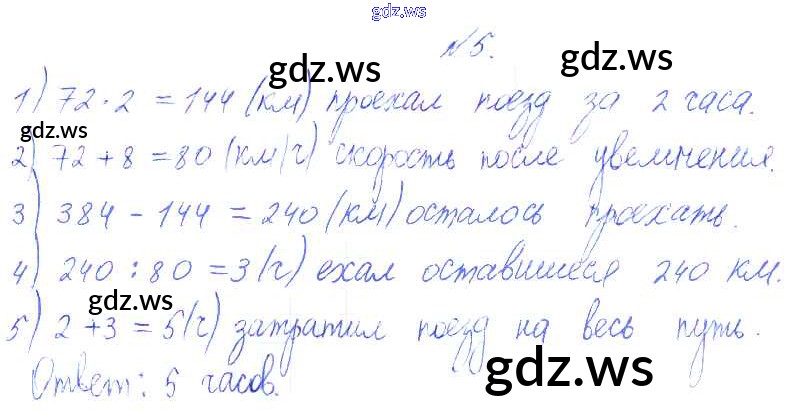 gdz.ws
№5.
gdz.ws
gdz.ws
1) 72·2 = 144 (км) проехал поезд за 2 часа.
gdz.ws
2) 72+8 = 80 (км/ч) скорость после увеличения.
3) 384 - 144 = 240 (км) осталось проехать.
4) 240 : 80 = 3 (ч) ехал оставшиеся 240 км.
gdz.ws
5) 2+3 = 5 (ч) затратил поезд на весь путь.
gdz.ws
Ответ: 5 часов.